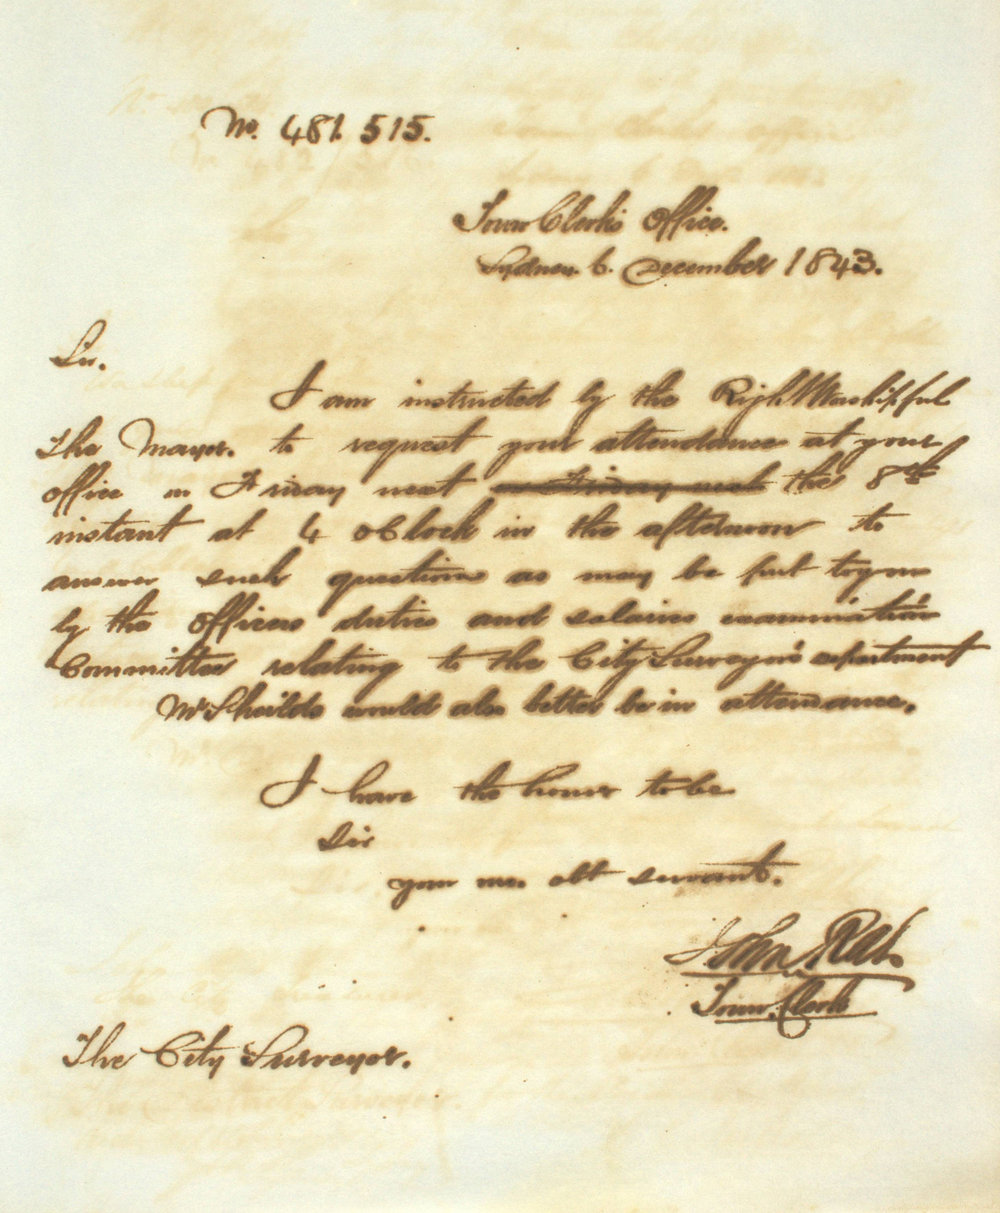 No. 481. 515.
Town Clerk's Office.
Sydney. 6. December 1843.
Sir.
I am instructed by the Right Worshipful
The Mayor. to request your attendance at your
office on Friday next on Friday next the 8th
instant at 4 oClock in the afternoon to
answer such questions as may be put to you
by the Officers duties and salaries examination
Committee relating to the City Surveyor's department
Mr Sheilds would also better be in attendance.
I have the honor to be
Sir
your mo. obt servant.
John Rae
Town Clerk
The City Surveyor.